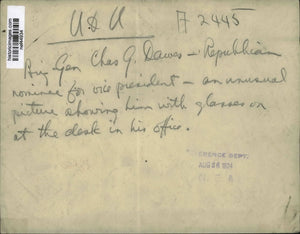 U & U
A 2445
Brig Gen Chas G. Dawes - Republican
nominee for vice president - an unusual
picture showing him with glasses on
at the desk in his office.
ERENCE DEPT.
AUG 26 1924
N. E. A.
historicimages.com